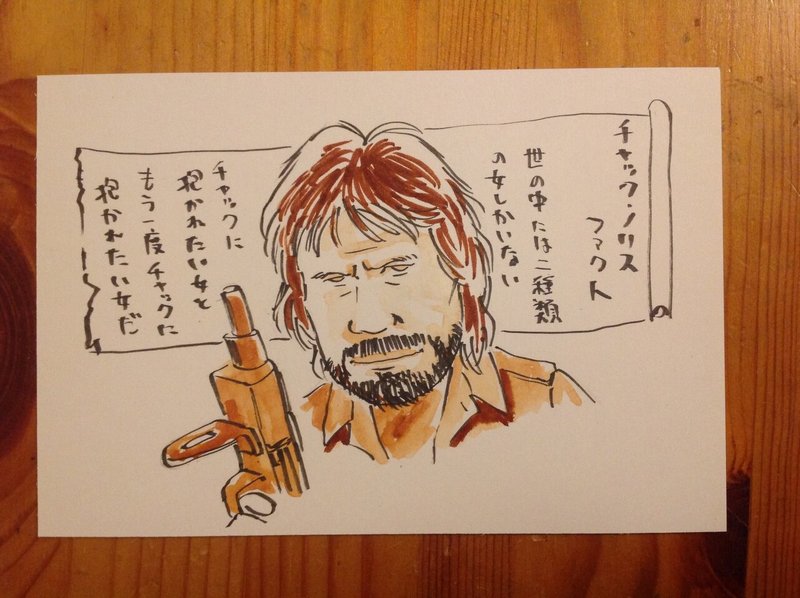 チャック・ノリス
ファクト
世の中には二種類
の女しかいない
チャックに
抱かれたい女と
もう一度チャックに
抱かれたい女だ